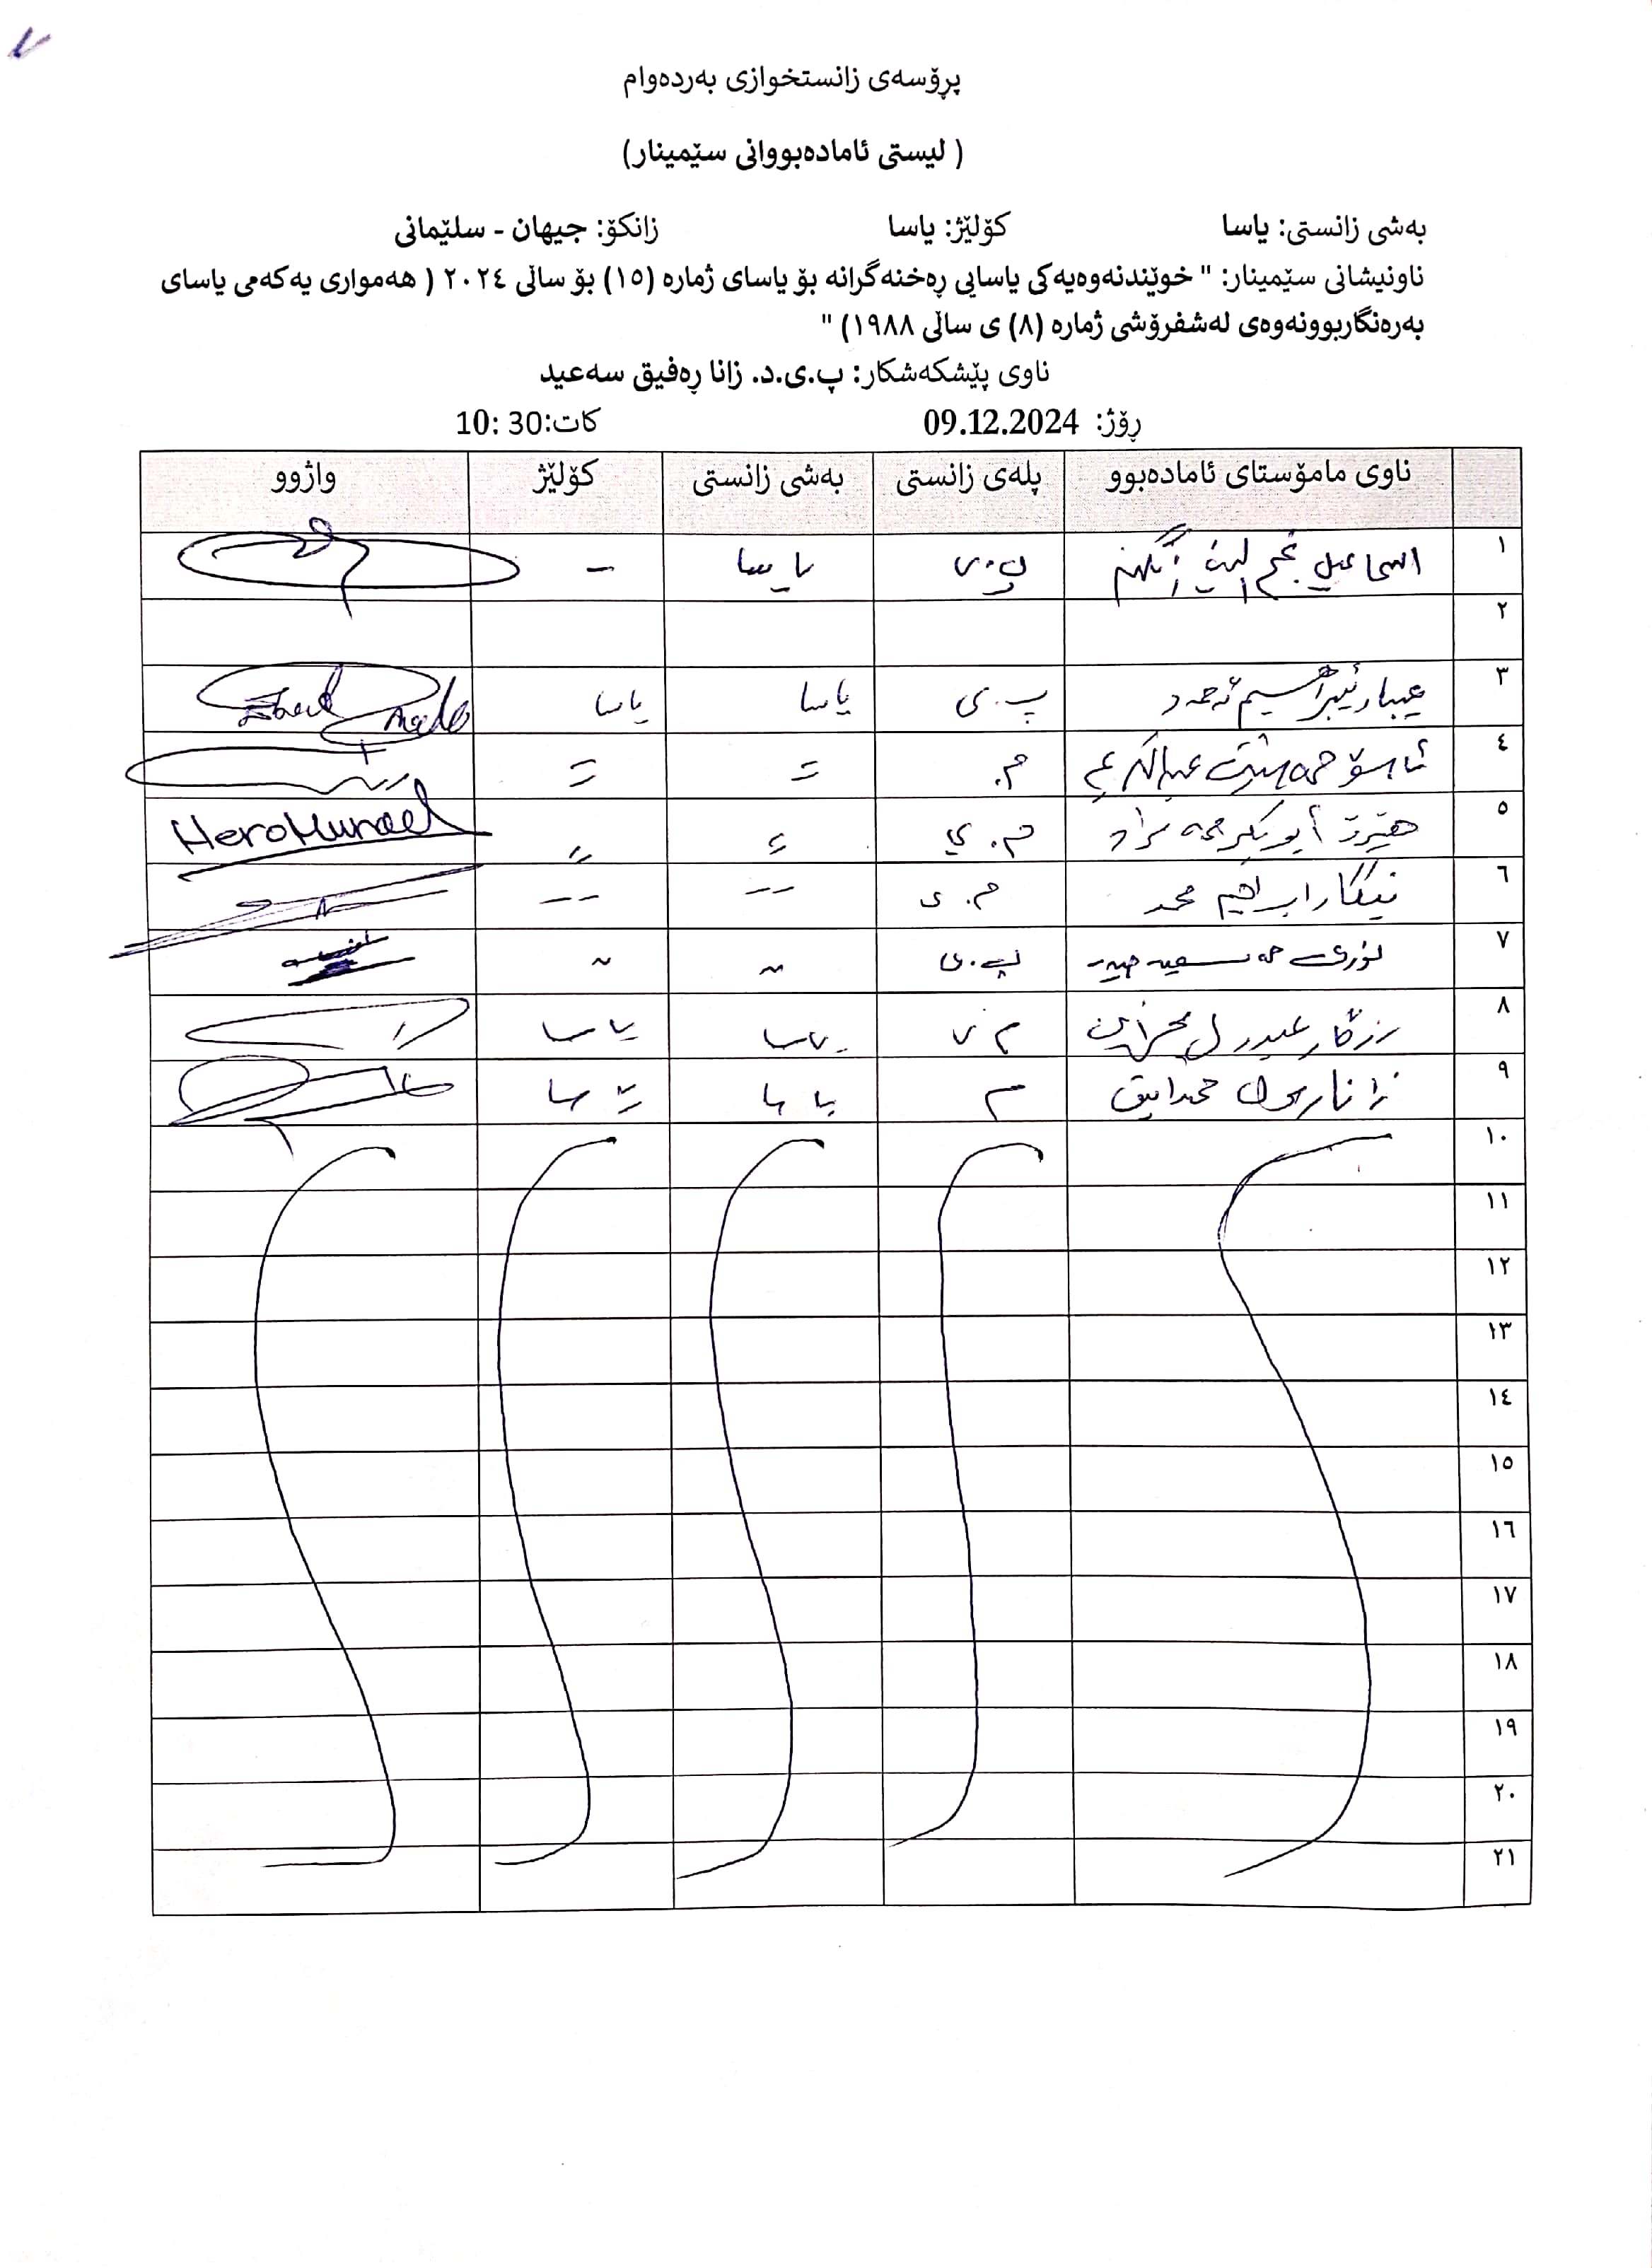 پرۆسەی زانستخوازی بەردەوام
( لیستی ئامادەبووانی سێمینار)
بەشی زانستی: یاسا کۆلێژ: یاسا زانکۆ: جیهان - سلێمانی
ناونیشانی سێمینار: " خوێندنەوەیەکی یاسایی ڕەخنەگرانە بۆ یاسای ژمارە (١٥) بۆ ساڵی ٢٠٢٤ ( هەمواری یەکەمی یاسای
بەرەنگاربوونەوەی لەشفرۆشی ژمارە (٨) ی ساڵی ١٩٨٨) "
ناوی پێشکەشکار: پ.ی.د. زانا ڕەفیق سەعید
ڕۆژ: 09.12.2024 کات:10: 30
ناوی مامۆستای ئامادەبوو پلەی زانستی بەشی زانستی کۆلێژ واژوو
١ اسماعیل نجم الدین پ.ی یاسا -
٢
٣ ئیبراهیم ئەحمەد پ.ی یاسا یاسا
٤ ئاسۆ حمە عبدالکریم م.
٥ أبوبکر حمە مراد م. ی Hero
٦ نیگار ابراهیم محمد م. ی
٧ نوری حمە سعید حیدر پ.ی
٨ رزگار م ی یاسا یاسا
٩ زانا رسول م یاسا یاسا
١٠
١١
١٢
١٣
١٤
١٥
١٦
١٧
١٨
١٩
٢٠
٢١